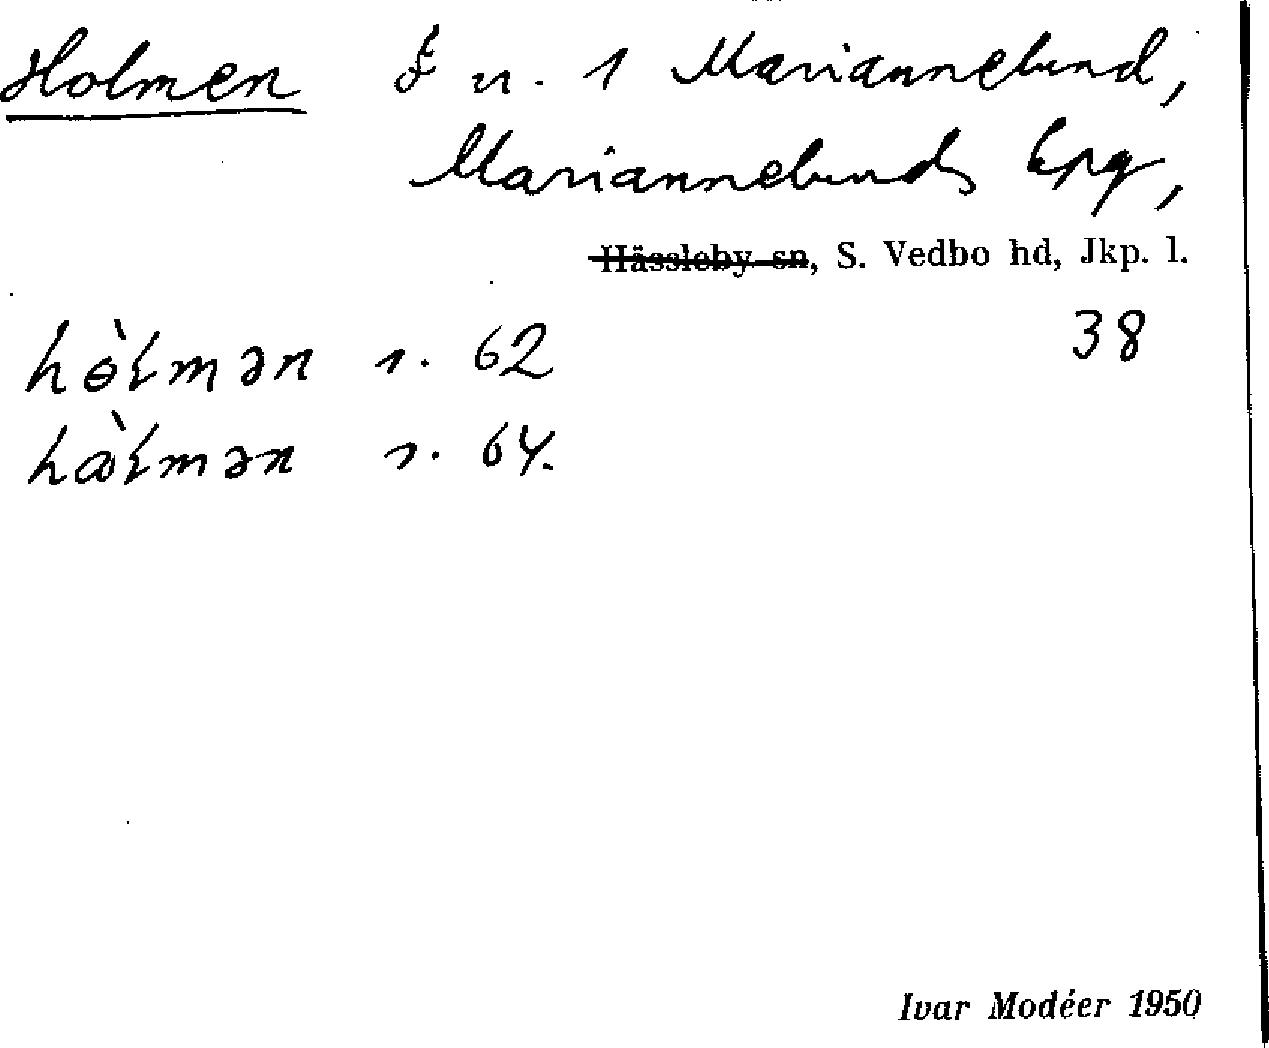 Holmen t u. 1 Mariannelund,
Mariannelunds kpg,
Hässleby sn, S. Vedbo hd, Jkp. l.
38
hɵ̀ɫmən s. 62
hὰɫmən s. 64.
Ivar Modéer 1950